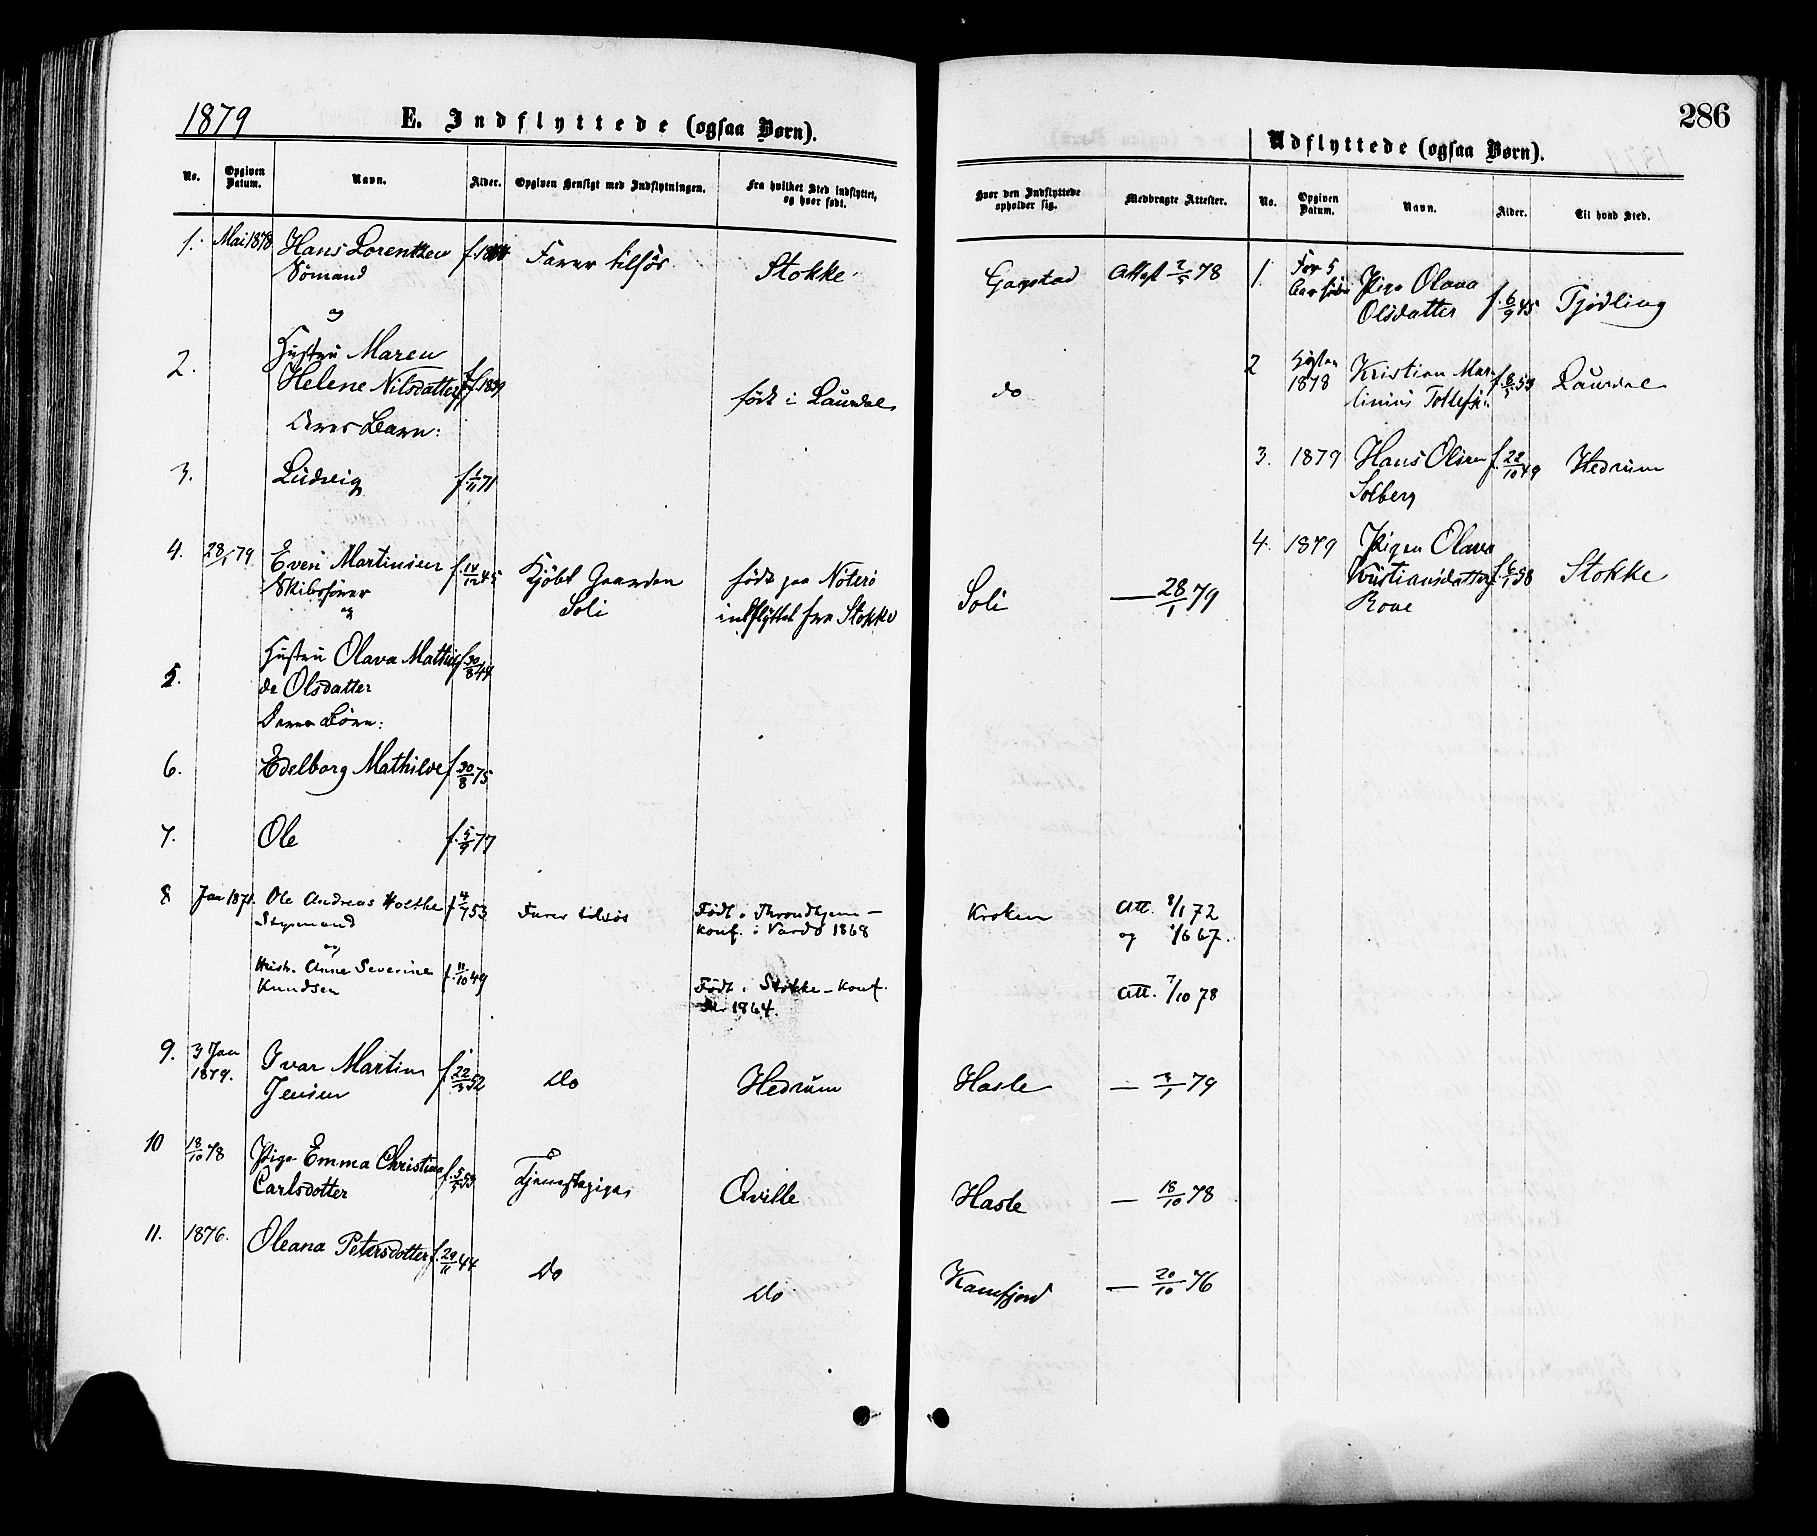 1879
E. Indflyttede (ogsaa Børn).
No. Opgiven Datum. Navn. Alder. Opgiven Hensigt med Indflytningen. Fra hvilket Sted indflyttet, og hvor født.
1. Mai 1878 Hans Lorentzen Farer tilsøs Stokke
Sømand
og
2. Hustru Maren
Helene Nilsdatter f. 1839 født i Laurdal
Deres Barn:
3. Ludvig f. 1/11 71
4. 28/1 79 Even Martinsen f. 14/12 45 Kjøbt Gaarden født paa Nøterø
Skibsfører Soli indflyttet fra Stokke
og
5. Hustru Olava Mathil f. 30/8 44
de Olsdatter
Deres Børn:
6. Edelborg Mathilde f. 30/8 75
7. Ole f. 5/9 77
8 Ole Andreas Holthe f. 4/7 53 Farer tilsøs Født i Throndhjem –
Styrmand konf. i Vardø 1868
og
Hustr. Anne Severine f. 11/10 49 Født i Stokke – konf.
Knudsen der 1864.
9. 3 Jan Ivar Martin f. 22/3 52 Do Hedrum
1879. Jensen
10 18/10 78 Pige Emma Christina f. 5/5 53 Tjenestepige Qville
Carlsdotter
11. 1876. Oleana Petersdotter f. 29/11 44 Do Do
286
Udflyttede (ogsaa Børn).
Hvor den Indflyttede opholder sig. Medbragte Attester. No. Opgiven Datum. Navn. Alder. Til hvad Sted.
Gogstad Attest 2/5 78
do
Soli — 28/1 79
Kroken Att. 8/1 72
og 1/6 67.
Att. 7/10 78
Hasle — 3/1 79
Hasle — 18/10 78
Kamfjord — 20/10 76
1. For 5 Pige Olava f. 6/9 45 Tjødling
Aar siden Olsdatter
2 Høsten Kristian Mar Laurdal
1878 tinius Tollefs.
3. 1879 Hans Olsen f. 22/10 49 Hedrum
Solberg
4. 1879 Pigen Olava
Kristiansdatter f. 6/1 58 Stokke